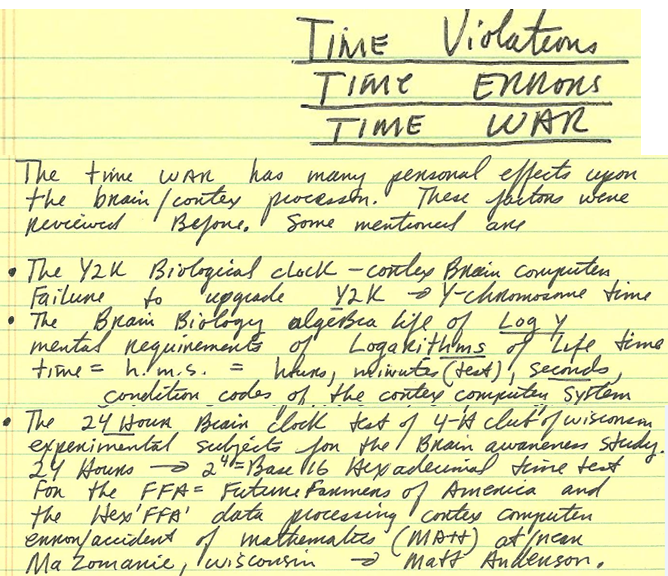 TIME Violations
TIME ERRORS
TIME WAR
The time WAR has many personal effects upon
the brain/cortex processor. These factors were
reviewed Before. Some mentioned are
• The Y2K Biological clock - cortex Brain computer
Failure to upgrade Y2K → Y-chromosome time
• The Brain Biology algebra life of Log Y
mental requirements of Logarithms of Life time
time = h.m.s. = hours, minutes (test), seconds,
condition codes of the cortex computer system
• The 24 Hour Brain clock test of 4-H club of wisconsin
experimental subjects for the Brain awareness study.
24 Hours → 2⁴ = Base 16 Hexadecimal time test
for the FFA = Future Farmers of America and
the Hex 'FFA' data processing cortex computer
error/accident of mathematics (MATH) at/near
Mazomanie, wisconsin → Matt Anderson.